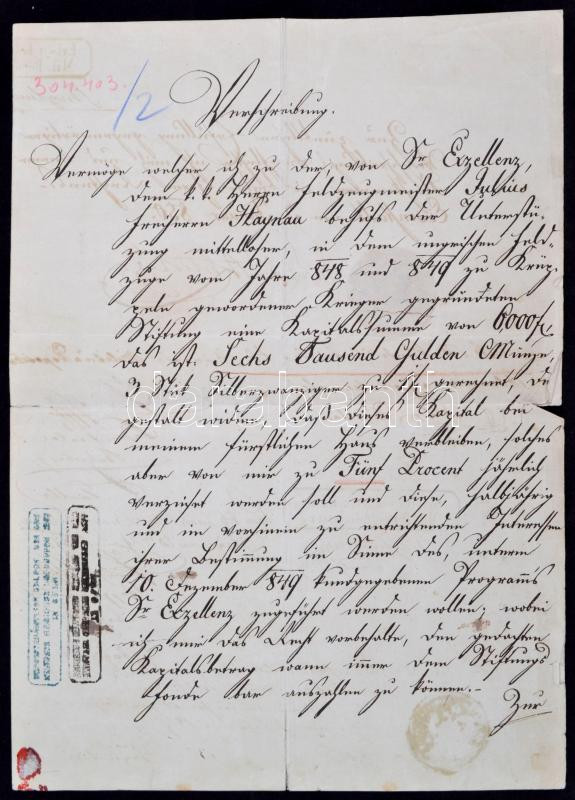 304.403.
1/2
Verschreibung.
Vermöge welcher ich zu der, von Sr Exzellenz,
dem k.k. Herrn Feldzeugmeister Julius
Freiherrn Haynau behufs der Unterstü-
zung mittelloser, in dem ungrischen Feld-
zuge vom Jahre 848 und 849 zu Krüp-
peln gewordener Krieger gegründeten
Stiftung eine Kapitalssumme von 6,000 f,
das ist: Sechs Tausend Gulden CMünze,
3 Stük Silberzwanziger zu 1 f gerechnet, der
gestalt widme, daß dieses Kapital bei
meinem fürstlichen Haus verbleiben, solches
aber von mir zu Fünf Procent jährlich
verzinset werden soll und diese, halbjährig
und im vorhinein zu entrichtenden Interessen
ihrer Bestimmung im Sinne des, unterm
10. Dezember 849 kundgegebenen Programms
Sr Exzellenz zugeführt werden wollen; wobei
ich mir das Recht vorbehalte, den gedachten
Kapitalsbetrag wann immer dem Stiftungs
fonde bar auszahlen zu können.-
Zur
darabanth